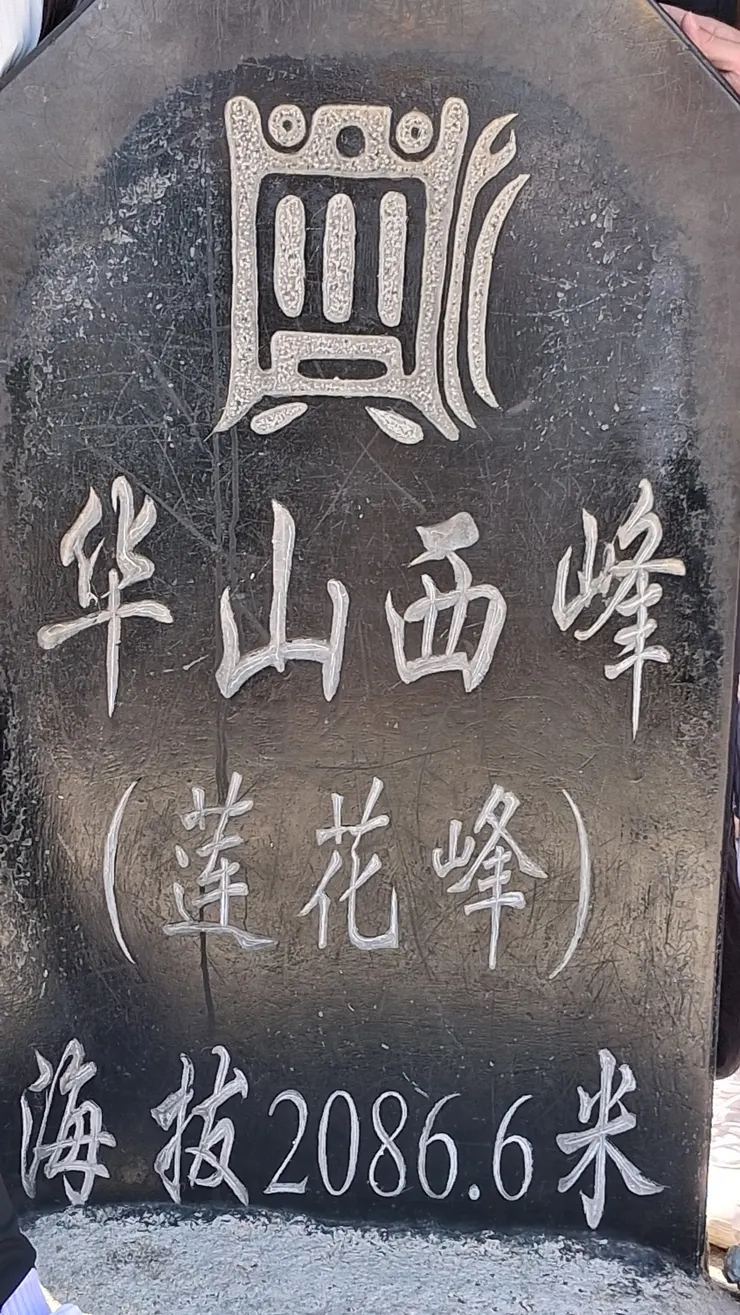 华山西峰
(莲花峰)
海拔2086.6米